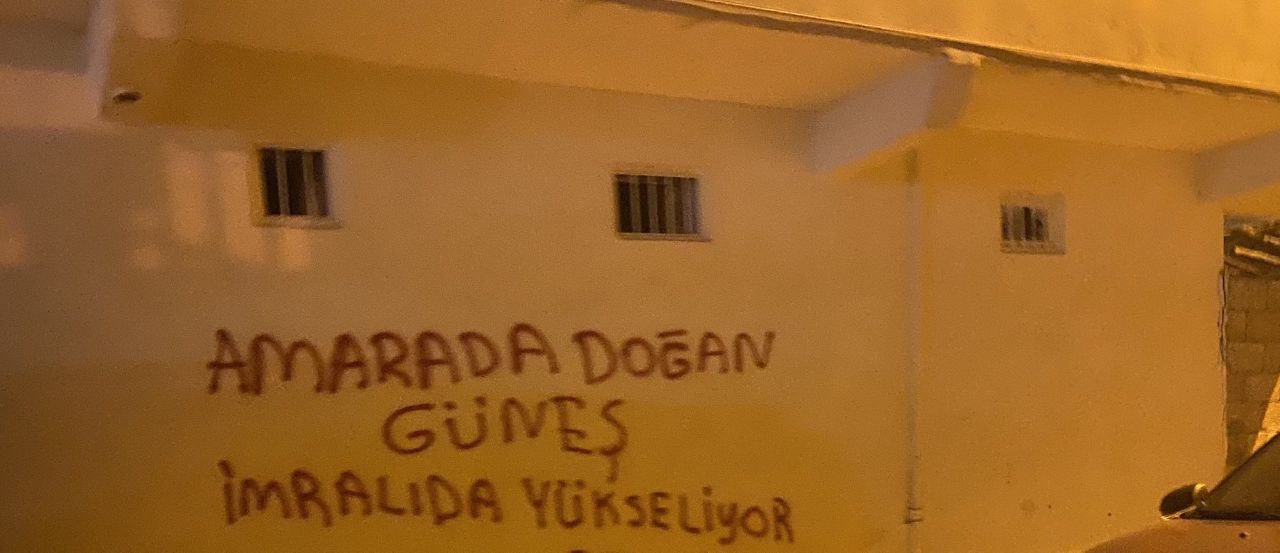 AMARADA DOĞAN
GÜNEŞ
İMRALIDA YÜKSELİYOR